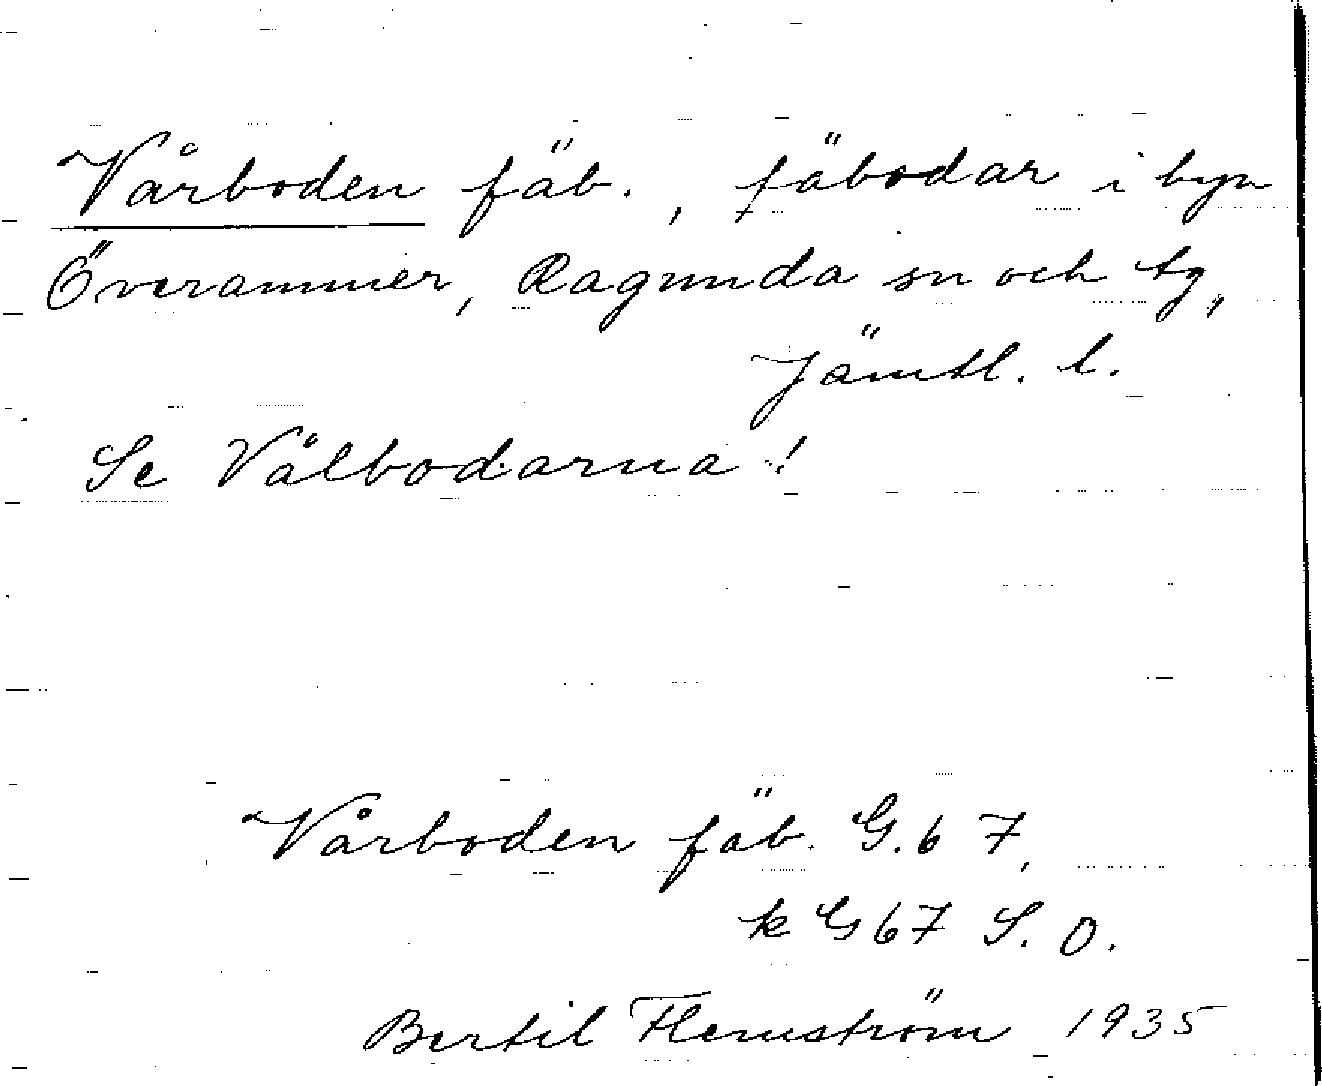 Vårboden fäb., fäbodar i byn
Överammer, Ragunda sn och tg,
Jämtl. l.
Se Vålbodarna!
Vårboden fäb. G. 67,
k G 67 S. O.
Bertil Flemström 1935